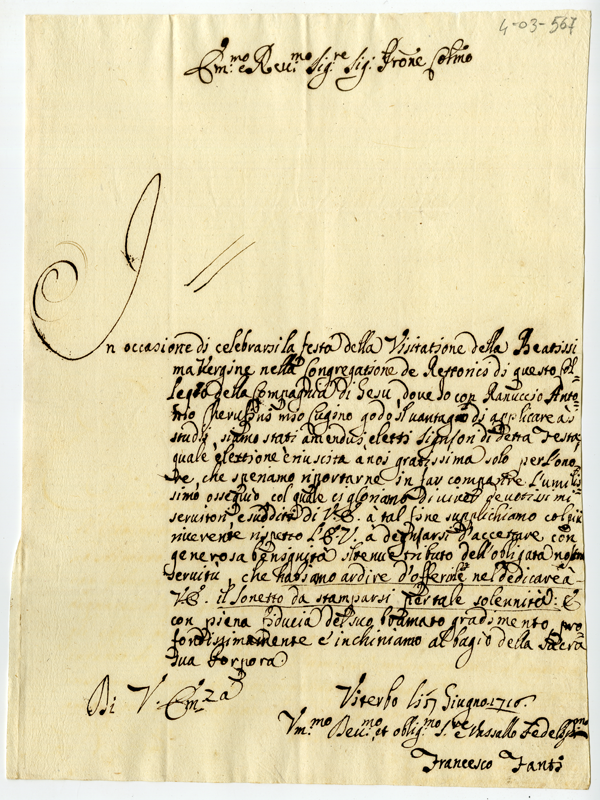 4-03-567
Em.mo e Reu.mo Sig.re Sig. Prone Colmo
In occasione di celebrarsi la festa della Visitatione della Beatissi
ma Vergine nella Congregatione de Rettorici di questo Col-
legio della Compagnia di Giesu, dove Io con Ranuccio Anto-
nio mio Cugino godo il vantagio di applicare à i
studij, siamo stati amendue eletti Signori di detta Festa,
quale elettione è riuscita a noi gratissima solo per l'ono-
re, che speriamo riportarne in far comparire l'umilis-
simo ossequio col quale ci gloriamo di viver devotissimi
servitori, e sudditi di V.E. à tal fine supplichiamo col più
riverente rispetto l'E.V. à degnarsi d'accettare con
generosa benignità il tenue tributo dell'obligata nostra
servitù, che habbiamo ardire d'offerirle nel dedicare à
V.E. il sonetto da stamparsi per tale solennità: E
con piena fiducia del suo bramato gradimento, pro-
fondissimamente c'inchiniamo al bagio della Sacra
sua Porpora
Di V. Em.za
Viterbo li 17 Giugno 1716.
Vm.mo Deu.mo, et oblig.mo S.re e Vassallo Fedeliss.mo
Francesco Fanti